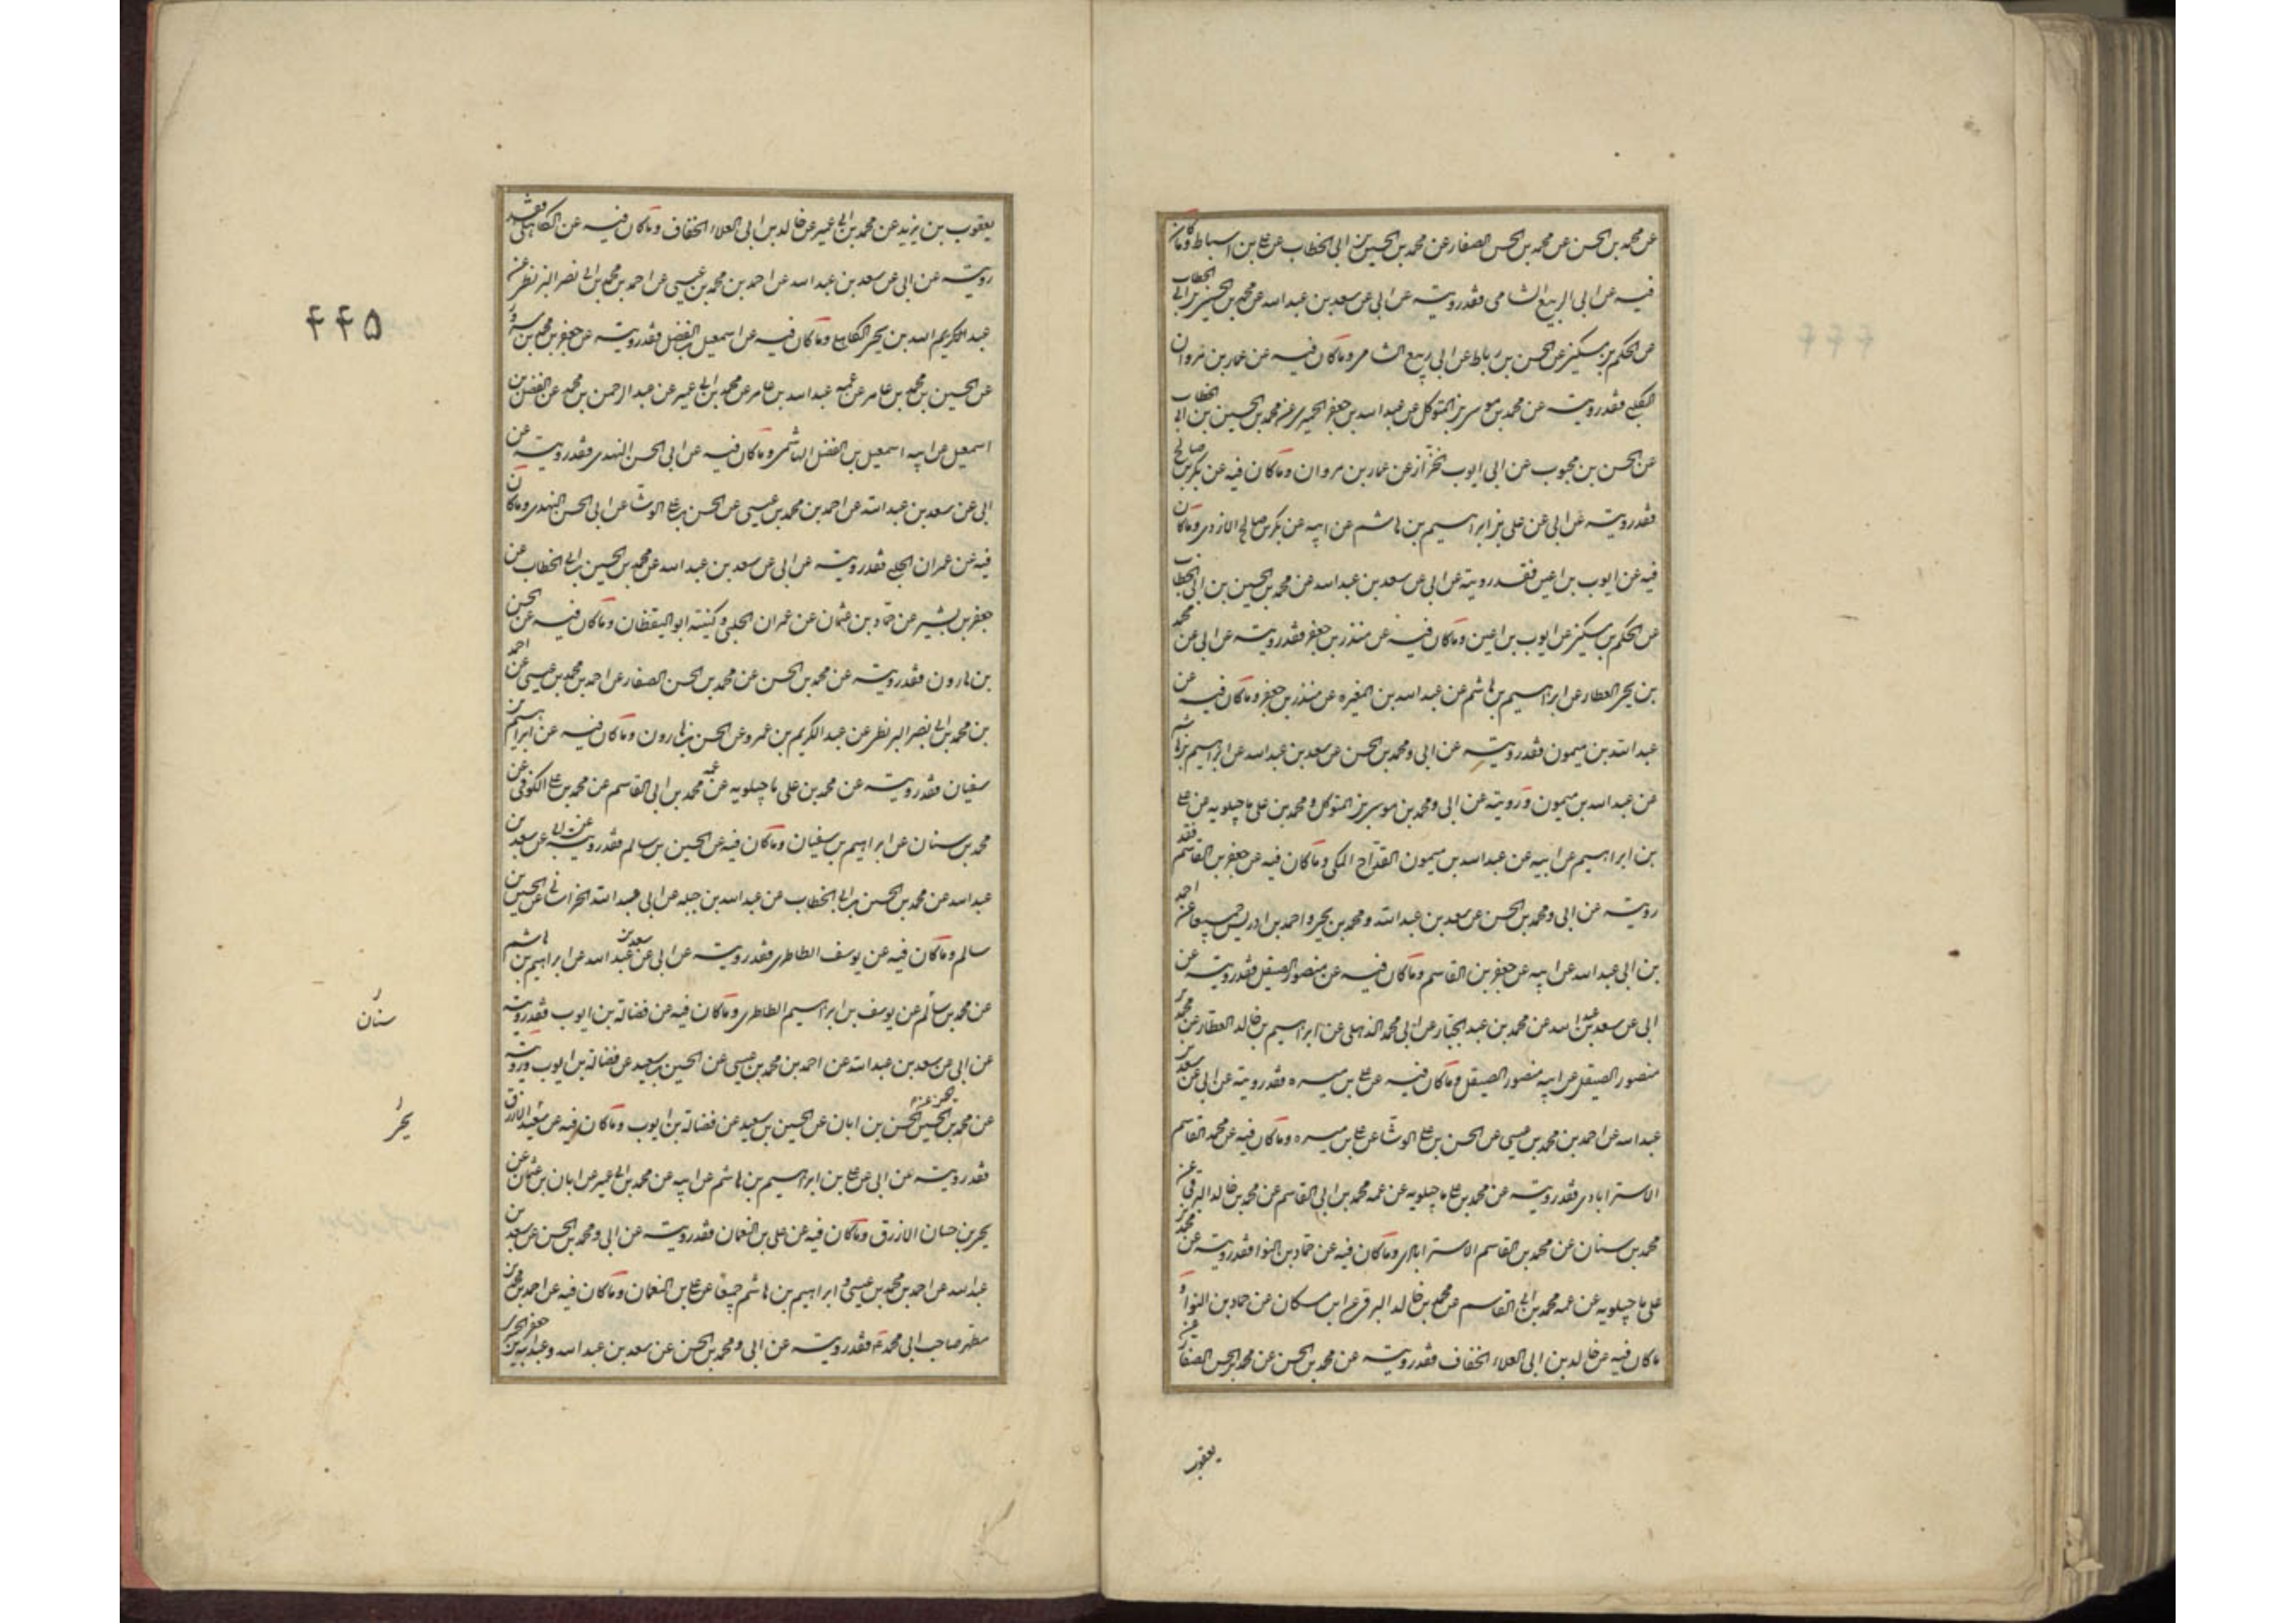 عن محمد بن الحسن عن محمد بن الحسن الصفار عن محمد بن الحسين بن ابی الخطاب عن علی بن اسباط وما کان
فیه عن ابی الربیع الشامی فقد رویته عن ابی عن سعد بن عبد الله عن محمد بن الحسین بن ابی الخطاب
عن الحکم بن مسکین عن الحسن بن رباط عن ابی ربیع الشامی وما کان فیه عن عمار بن مروان
الکلبی فقد رویته عن محمد بن موسی بن المتوکل عن عبد الله بن جعفر الحمیری عن محمد بن الحسین بن ابی الخطاب
عن الحسن بن محبوب عن ابی ایوب الخزاز عن عمار بن مروان وما کان فیه عن بکر بن صالح
فقد رویته عن ابی عن علی بن ابراهیم بن هاشم عن ابیه عن بکر بن صالح الازدی وما کان
فیه عن ایوب بن اعین فقد رویته عن ابی عن سعد بن عبد الله عن محمد بن الحسین بن ابی الخطاب
عن الحکم بن مسکین عن ایوب بن اعین وما کان فیه عن منذر بن جعفر فقد رویته عن ابی عن محمد
بن یحیی العطار عن ابراهیم بن هاشم عن عبد الله بن المغیره عن منذر بن جعفر وما کان فیه عن
عبد الله بن میمون فقد رویته عن ابی ومحمد بن الحسن عن سعد بن عبد الله عن ابراهیم بن هاشم
عن عبد الله بن میمون ورویته عن ابی ومحمد بن موسی بن المتوکل ومحمد بن علی ماجیلویه عن علی
بن ابراهیم عن ابیه عن عبد الله بن میمون القداح المکی وما کان فیه عن جعفر بن القاسم فقد
رویته عن ابی ومحمد بن الحسن عن سعد بن عبد الله ومحمد بن یحیی واحمد بن ادریس جمیعا عن احمد
بن ابی عبد الله عن ابیه عن جعفر بن القاسم وما کان فیه عن منصور الصیقل فقد رویته عن
ابی عن سعد بن عبد الله عن محمد بن عبد الجبار عن ابی محمد الذهلی عن ابراهیم بن خالد العطار عن محمد بن
منصور الصیقل عن ابیه منصور الصیقل وما کان فیه عن علی بن میسره فقد رویته عن ابی عن سعد بن
عبد الله عن احمد بن محمد بن عیسی عن الحسن بن علی الوشا عن علی بن میسره وما کان فیه عن محمد القاسم
الاسترابادی فقد رویته عن محمد بن علی ماجیلویه عن عمه محمد بن ابی القاسم عن محمد بن خالد البرقی عن
محمد بن سنان عن محمد بن القاسم الاسترابادی وما کان فیه عن حماد بن النوا فقد رویته عن محمد بن
علی ماجیلویه عن عمه محمد بن ابی القاسم عن محمد بن خالد البرقی عن ابن مسکان عن حماد بن النوا و
ما کان فیه عن خالد بن ابی العلاء الخفاف فقد رویته عن محمد بن الحسن عن محمد بن الحسن الصفار عن
یعقوب
یعقوب بن یزید عن محمد بن ابی عمیر عن خالد بن ابی العلاء الخفاف وما کان فیه عن الکاهلی فقد
رویته عن ابی عن سعد بن عبد الله عن احمد بن محمد بن عیسی عن احمد بن محمد بن ابی نصر البزنطی عن
۴۴۵
عبد الکریم الله بن یحیی الکاهلی وما کان فیه عن اسمعیل بن الفضل فقد رویته عن جعفر بن محمد بن مسرور
عن الحسین بن محمد بن عامر عن عمه عبد الله بن عامر عن محمد بن ابی عمیر عن عبد الرحمن بن محمد عن الفضل بن
اسمعیل عن ابیه اسمعیل بن الفضل الهاشمی وما کان فیه عن ابی الحسن النهدی فقد رویته عن
ابی عن سعد بن عبد الله عن احمد بن محمد بن عیسی عن الحسن بن علی الوشا عن ابی الحسن النهدی وما کان
فیه عن عمران الحلبی فقد رویته عن ابی عن سعد بن عبد الله عن محمد بن الحسین بن ابی الخطاب عن
جعفر بن بشیر عن حماد بن عثمان عن عمران الحلبی وکنیته ابو الیقظان وما کان فیه عن الحسن
بن هارون فقد رویته عن محمد بن الحسن عن محمد بن الحسن الصفار عن احمد بن محمد بن عیسی عن احمد
بن محمد بن ابی نصر البزنطی عن عبد الکریم بن عمرو عن الحسن بن هارون وما کان فیه عن ابراهیم بن
سفیان فقد رویته عن محمد بن علی ماجیلویه عن عمه محمد بن ابی القاسم عن محمد بن علی الکوفی عن
محمد بن سنان عن ابراهیم بن سفیان وما کان فیه عن الحسین بن سالم فقد رویته عن ابی عن سعد بن
عبد الله عن محمد بن الحسین بن ابی الخطاب عن عبد الله بن جبله عن ابی عبد الله الخراسانی عن الحسین بن
سالم وما کان فیه عن یوسف الطاطری فقد رویته عن ابی عن سعد بن عبد الله عن ابراهیم بن هاشم
عن محمد بن سالم عن یوسف بن ابراهیم الطاطری وما کان فیه عن فضالة بن ایوب فقد رویته
سنان
عن ابی عن سعد بن عبد الله عن احمد بن محمد بن عیسی عن الحسین بن سعید عن فضالة بن ایوب ورویته
عن محمد بن الحسن عن الحسین بن الحسن بن ابان عن الحسین بن سعید عن فضالة بن ایوب وما کان فیه عن الازرق
یحیی
فقد رویته عن ابی عن علی بن ابراهیم بن هاشم عن ابیه عن محمد بن ابی عمیر عن ابان بن عثمان عن
یحیی بن حسان الازرق وما کان فیه عن علی بن النعمان فقد رویته عن ابی ومحمد بن الحسن عن سعد بن
عبد الله عن احمد بن محمد بن عیسی وابراهیم بن هاشم جمیعا عن علی بن النعمان وما کان فیه عن احمد بن محمد بن
مطهر صاحب ابی محمد ع فقد رویته عن ابی ومحمد بن الحسن عن سعد بن عبد الله وعبد الله بن جعفر الحمیری